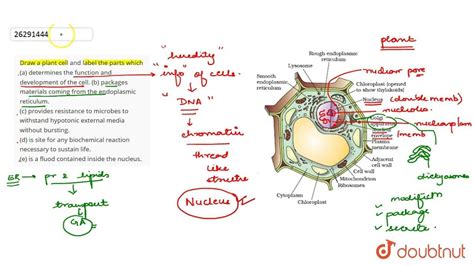 26291444
Draw a plant cell and label the parts which
,(a) determines the function and
development of the cell. (b) packages
materials coming from the endoplasmic
reticulum.
(c) provides resistance to microbes to
withstand hypotonic external media
without bursting.
(d) is site for any biochemical reaction
necessary to sustain life.
,(e) is a fluid contained inside the nucleus.
ER → pr 2 lipids
transport
GA
" heredity "
info" of cells.
" DNA "
chromatin
thread
like
structure
Nucleus
plant
Rough endoplasmic
reticulum
Lysosome
Smooth
endoplasmic
reticulum
nuclear pore
Chloroplast (opened
to show thylakoids)
Nucleus (double memb)
Nucleolus
nucleoplasm
Golgi
(memb)
Plasma
membrane
Adjacent
cell wall
Cell wall
Mitochondrion
Ribosomes
Chloroplast
Cytoplasm
dictyosomes
modification
package
secrete
doubtnut